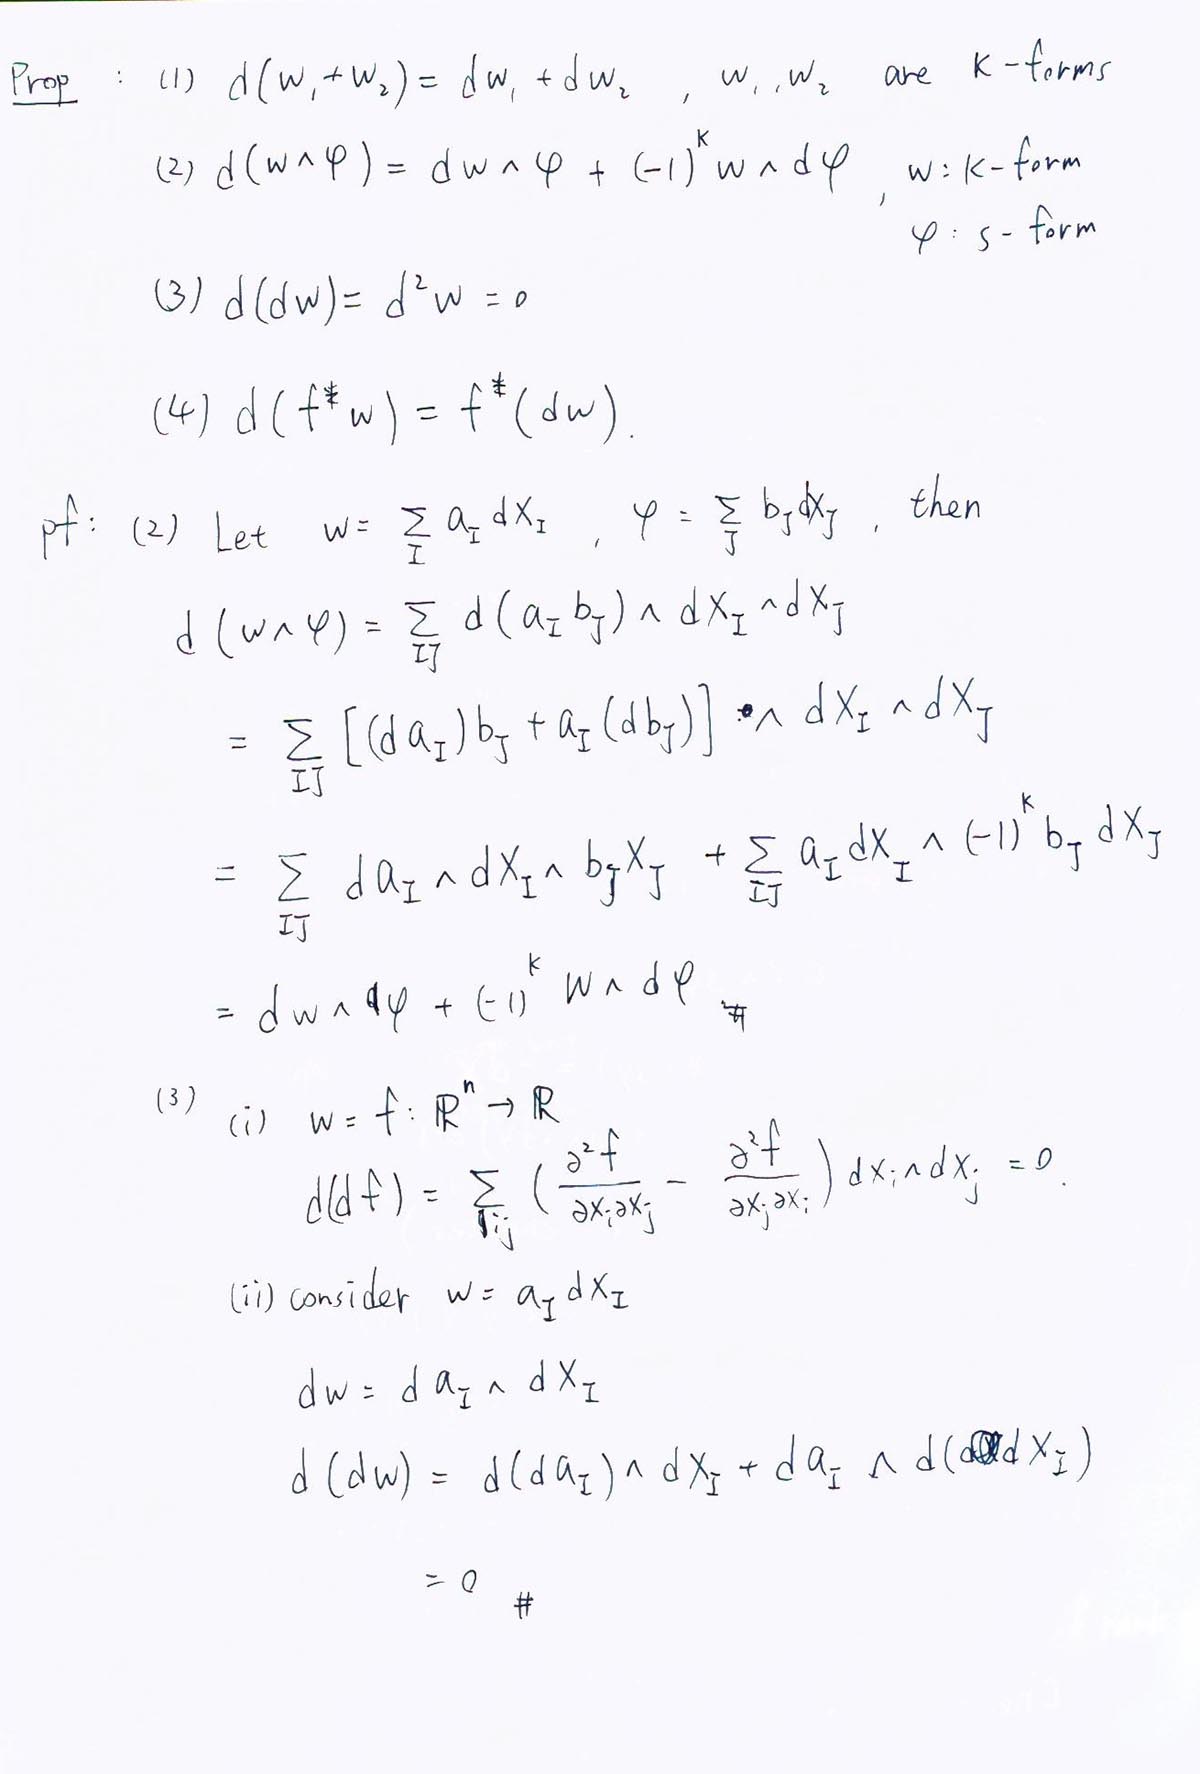 Prop : (1) d(w₁+w₂) = dw₁ + dw₂ , w₁, w₂ are k-forms
(2) d(w∧φ) = dw∧φ + (-1)^k w∧dφ , w: k-form
φ: s-form
(3) d(dw) = d²w = 0
(4) d(f*w) = f*(dw).
pf: (2) Let w = Σ_I a_I dX_I , φ = Σ_J b_J dX_J , then
d(w∧φ) = Σ_IJ d(a_I b_J) ∧ dX_I ∧ dX_J
= Σ_IJ [(da_I)b_J + a_I(db_J)] ∧ dX_I ∧ dX_J
= Σ_IJ da_I ∧ dX_I ∧ b_J X_J + Σ_IJ a_I dX_I ∧ (-1)^k b_J dX_J
= dw∧dφ + (-1)^k w∧dφ #
(3) (i) w = f: ℝⁿ → ℝ
d(df) = Σ_ij (∂²f/∂x_i∂x_j - ∂²f/∂x_j∂x_i) dx_i∧dx_j = 0.
(ii) consider w = a_I dX_I
dw = da_I ∧ dX_I
d(dw) = d(da_I) ∧ dX_I + da_I ∧ d(dX_I)
= 0 #